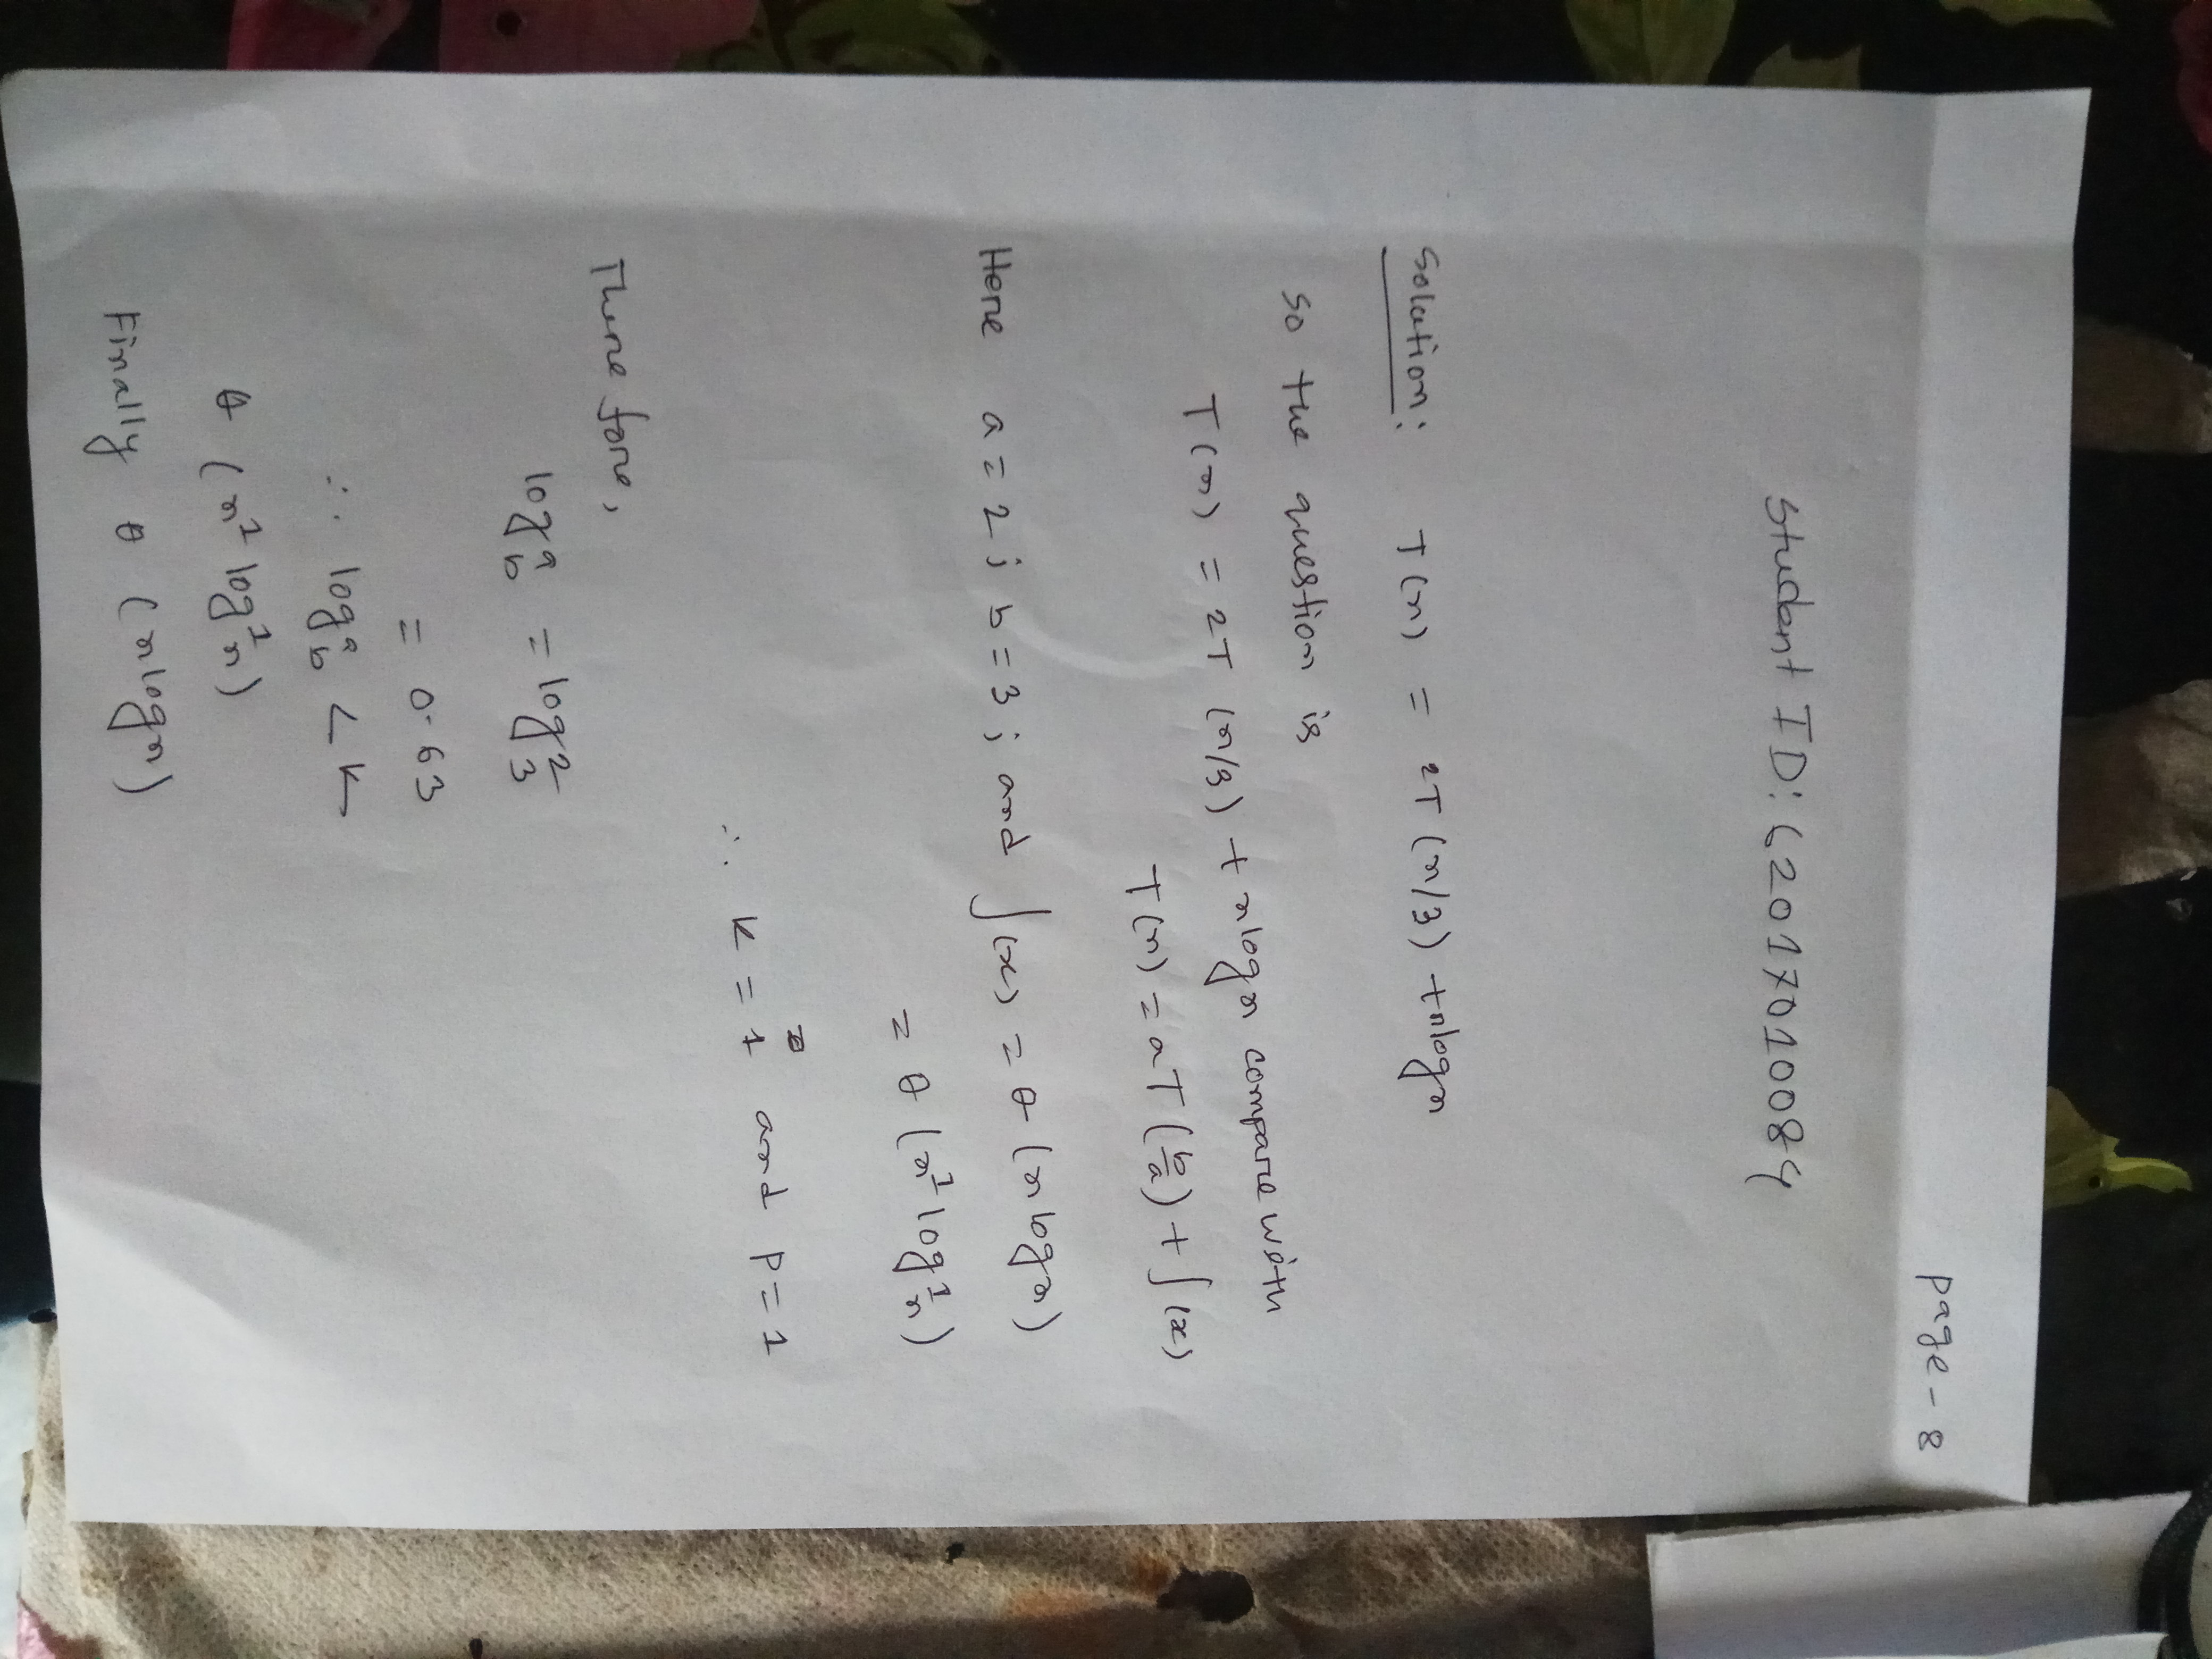 Page - 8
Student ID: 62017010084
Solution: T(n) = 2T(n/3) + nlogn
So the question is
T(n) = 2T (n/3) + nlogn compare with
T(n) = aT(b/a) + f(x)
Here a = 2 ; b = 3 ; and f(x) = θ (n logn)
= θ (n¹ log¹n)
∴ K = 1 and P = 1
There fore,
log_b^a = log_3^2
= 0.63
∴ log_b^a < K
θ (n¹ log¹n)
Finally θ (nlogn)